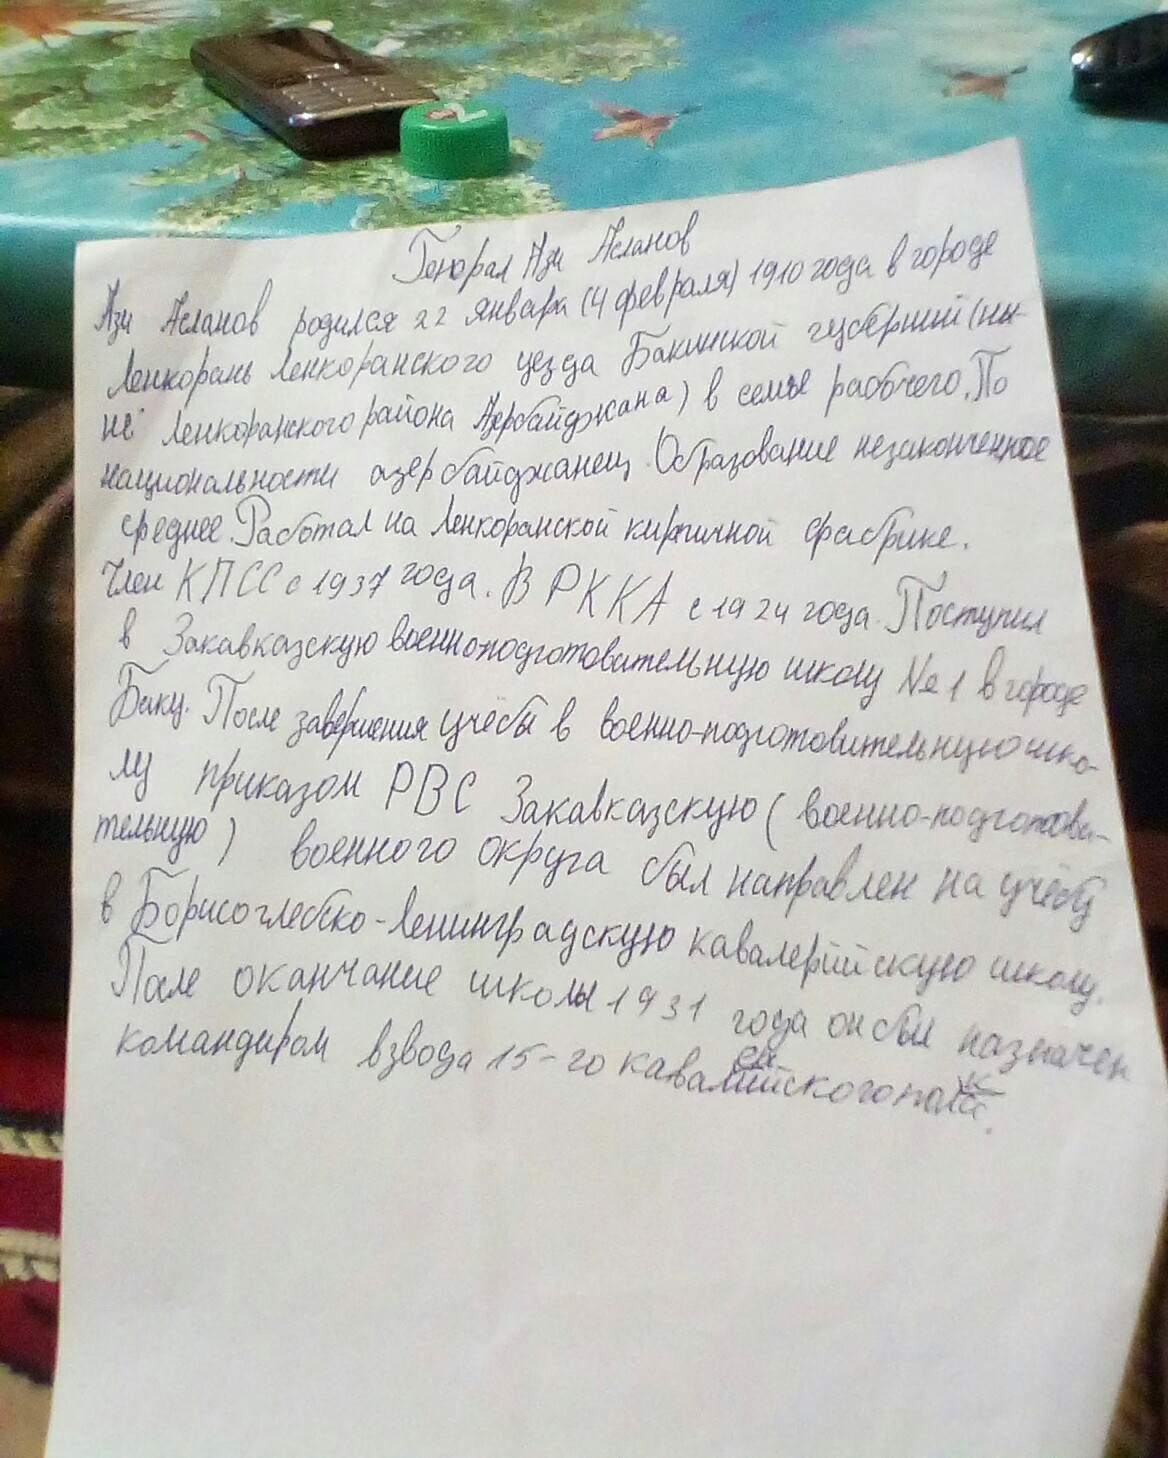 Генерал Ази Асланов
Ази Асланов родился 22 января (4 февраля) 1910 года в городе
Ленкорань Ленкоранского уезда Бакинской губерний (ны-
не Ленкоранского района Азербайджана) в семье рабочего. По
национальности азербайджанец. Образование незаконченное
среднее. Работал на Ленкоранской кирпичной фабрике.
Член КПСС с 1937 года. В РККА с 1924 года. Поступил
в Закавказскую военноподготовательную школу №1 в городе
Баку. После завершения учёбы в военно-подготовительную шко-
лу приказом РВС Закавказскую (военно-подготови-
тельную) военного округа был направлен на учёбу
в Борисоглебско-Ленинградскую кавалерийскую школу.
После оканчание школы 1931 года он был назначен
командиром взвода 15-го кавалерийского полка.